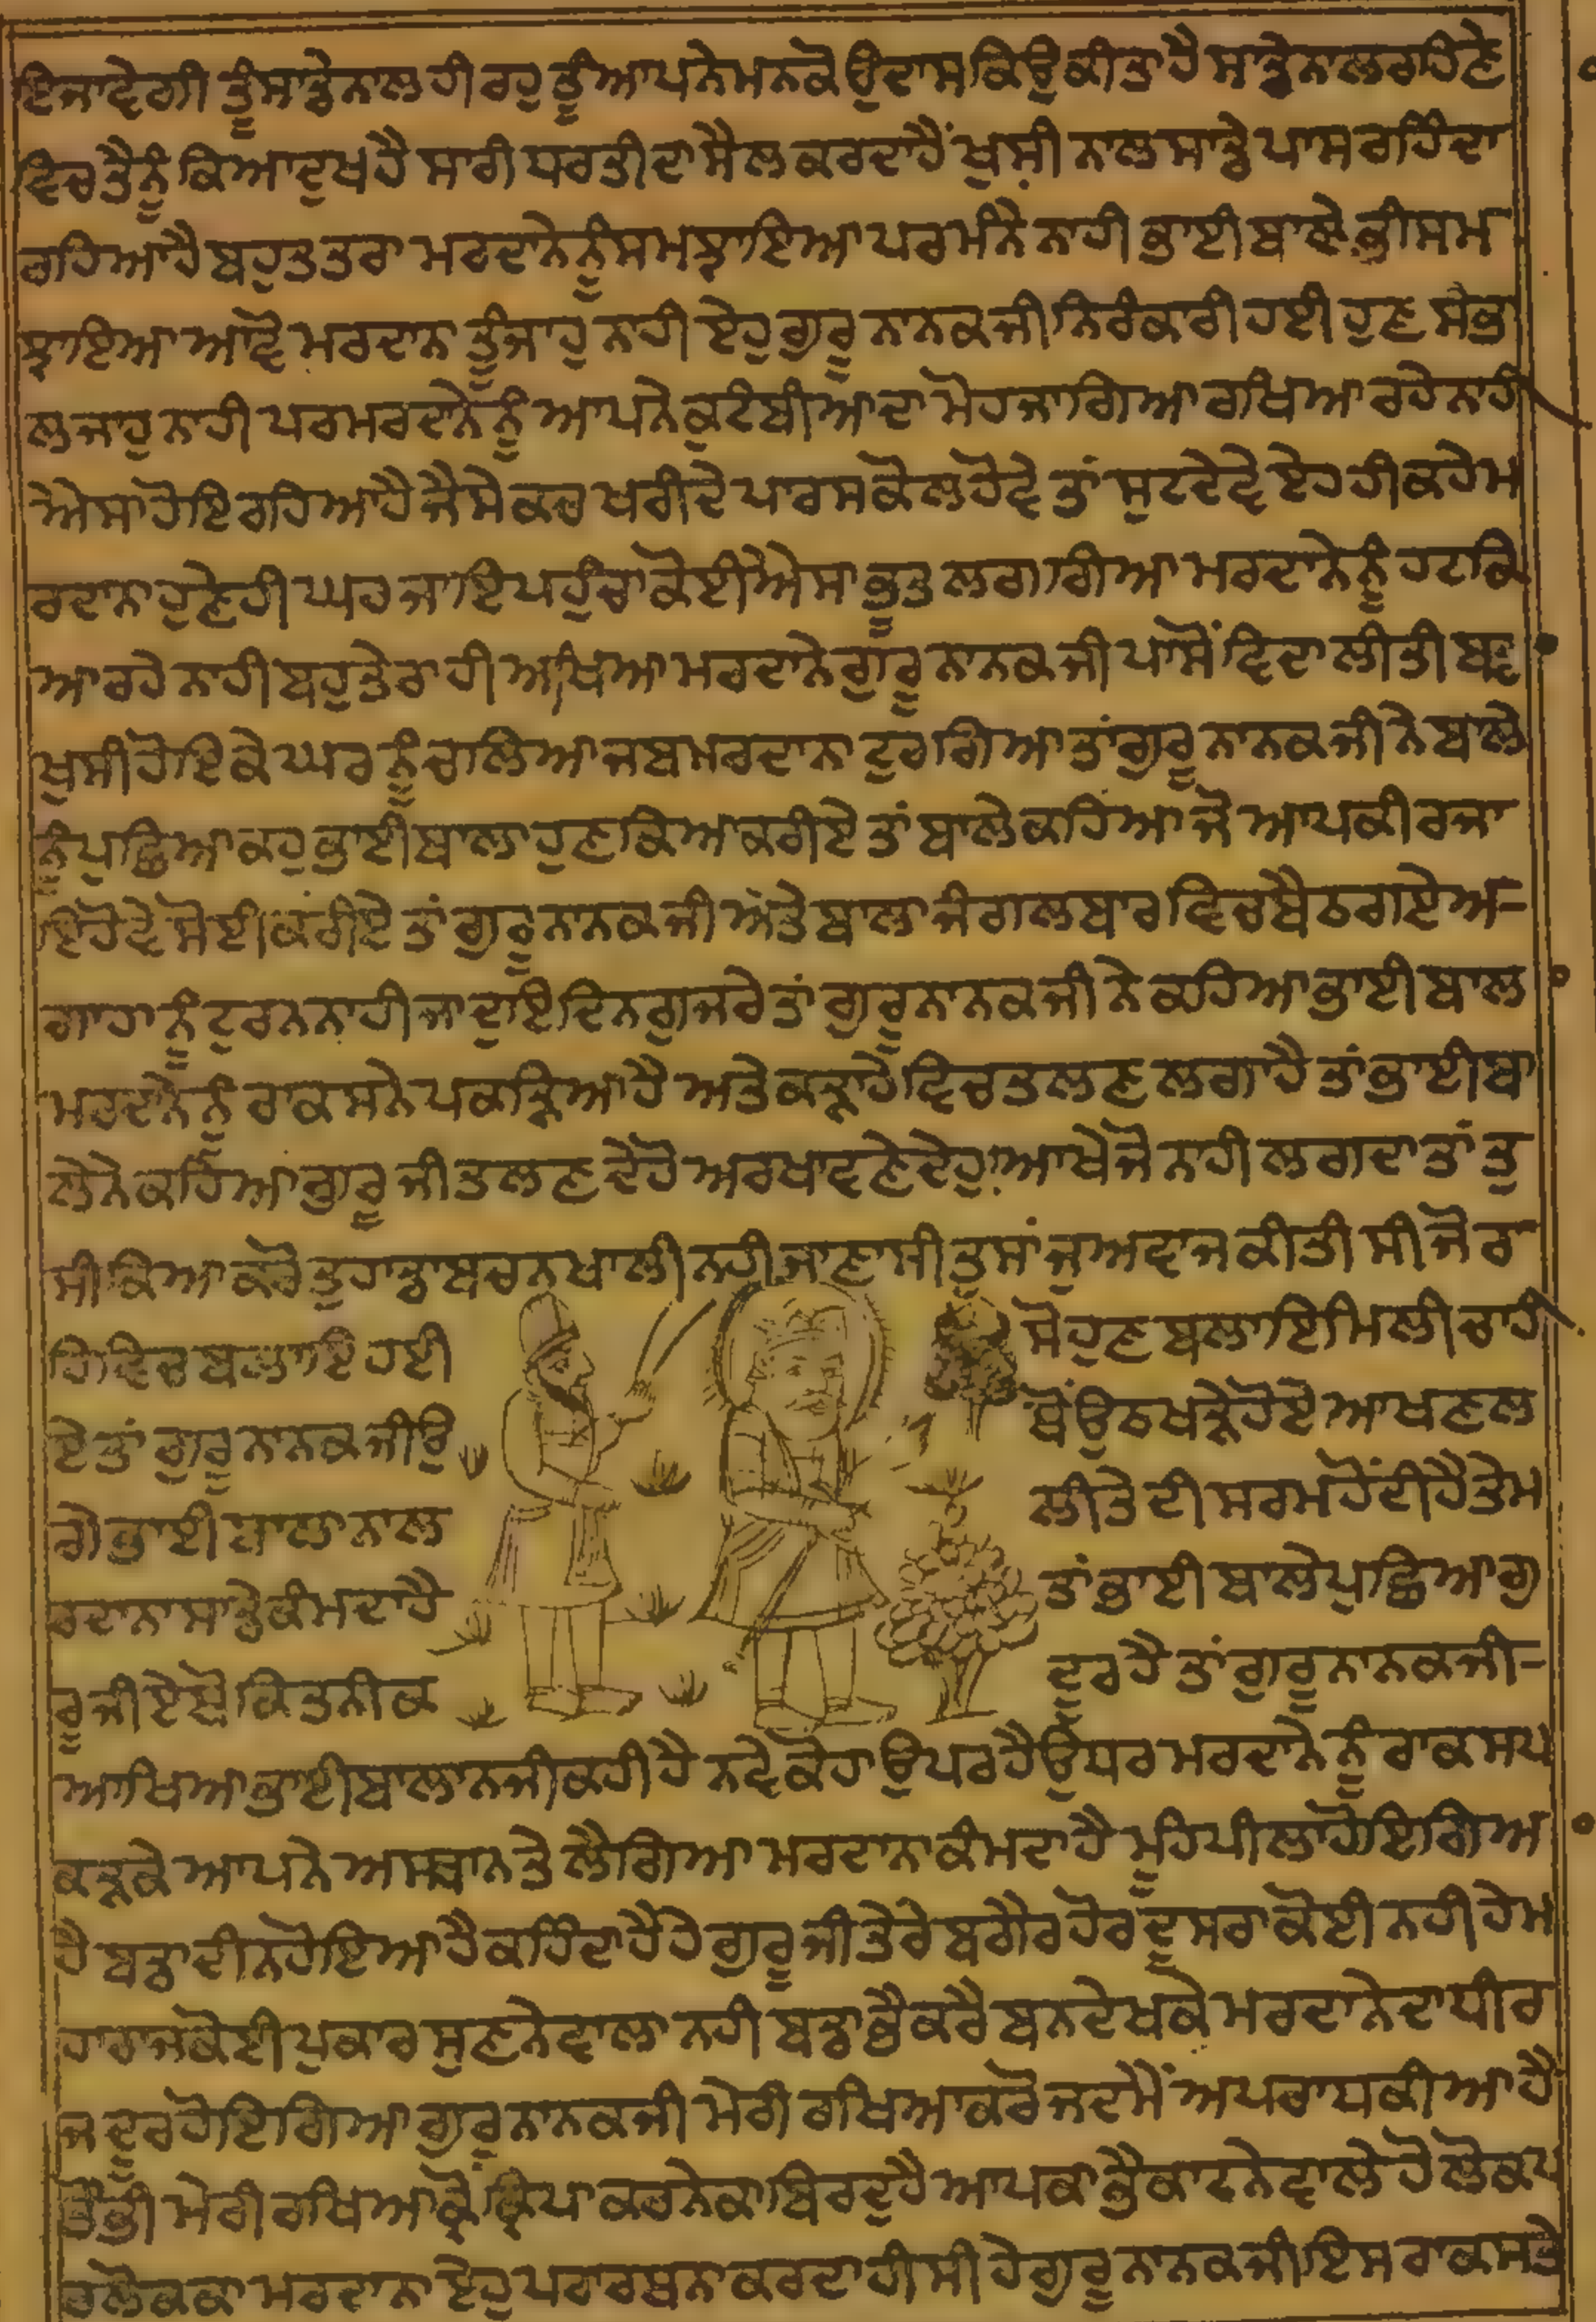 ਇਜਾਵੇਗੀ ਤੂੰਸਾਡੇਨਾਲ ਹੀ ਰਹੁ ਤੂੰਆਪਨੇਮਨਕੋ ਉਦਾਸ ਕਿਉਕੀਤਾਹੈ ਸਾਡੇਨਾਲਰਹਿਣੇ
ਵਿਚਤੈਨੂੰ ਕਿਆਦੁਖਹੈ ਸਾਰੀ ਧਰਤੀਦਾਸੈਲਕਰਦਾਹੈਂ ਖੁਸੀ ਨਾਲਸਾਡੇ ਪਾਸਰਹਿੰਦਾ
ਰਹਿਆਹੈ ਬਹੁਤਤਰਾ ਮਰਦਾਨੇਨੂੰਸਮਝਾਇਆ ਪਰਮੰਨੇ ਨਾਹੀ ਭਾਈ ਬਾਲੇ ਭੀਸਮ
ਝਾਇਆ ਆਵੋ ਮਰਦਾਨ ਤੂੰਜਾਹੁ ਨਾਹੀ ਏਹੁ ਗੁਰੂ ਨਾਨਕਜੀ ਨਿਰੰਕਾਰੀ ਹਈ ਹੁਣ ਸੈਭਾ
ਲਜਾਹੁ ਨਾਹੀ ਪਰਮਰਦਾਨੇਨੂੰ ਆਪਨੇ ਕੁਟੰਬੀਆਂਦਾ ਮੋਹਜਾਗਿਆ ਰਖਿਆ ਰਹੇ ਨਾਹੀ
ਐਸਾ ਹੋਇਰਹਿਆਹੈ ਜੈਸੇ ਕਚ ਖਰੀਦੇ ਪਾਰਸਕੋਲਹੋਵੇ ਤਾਂ ਸੁਟਦੇਵੇ ਏਹ ਹੀਕਹੇਮ
ਰਦਾਨਾ ਹੁਣੇਹੀ ਘਰ ਜਾਇ ਪਹੁੰਚਾ ਕੋਈਐਸਾ ਭੂਤ ਲਗਾਗਿਆ ਮਰਦਾਨੇਨੂੰ ਹਟਕਿ
ਆ ਰਹੇ ਨਾਹੀ ਬਹੁਤੇਰਾ ਹੀ ਆਖਿਆ ਮਰਦਾਨੇ ਗੁਰੂ ਨਾਨਕਜੀ ਪਾਸੋਂ ਵਿਦਾ ਲੀਤੀ ਬਡ
ਖੁਸੀਹੋਇਕੇ ਘਰਨੂੰਚਾਲਿਆ ਜਬਮਰਦਾਨਾ ਟੁਰਗਿਆ ਤਾਂਗੁਰੂ ਨਾਨਕਜੀਨੇ ਬਾਲੇ
ਨੂੰਪੁਛਿਆ ਕਹੁ ਭਾਈਬਾਲਾ ਹੁਣਕਿਆਕਰੀਏ ਤਾਂ ਬਾਲੇ ਕਹਿਆ ਜੋ ਆਪਕੀਰਜਾ
ਇਹੋਵੇ ਸੋਈਕਰੀਏ ਤਾਂ ਗੁਰੂ ਨਾਨਕਜੀ ਅਤੇਬਾਲਾ ਜੰਗਲਬਾਰ ਵਿਚਬੈਠਗਏਅ-
ਗਾਹਾਨੂੰਟੁਰਨਨਾਹੀ ਜਾਦੁਇਦਿਨਗੁਜਰੇਤਾਂ ਗੁਰੂਨਾਨਕਜੀਨੇਕਹਿਆ ਭਾਈਬਾਲ
ਮਰਦਾਨੇਨੂੰ ਰਾਕਸਨੇ ਪਕੜਿਆਹੈ ਅਤੇਕੜਾਹੇਵਿਚਤਲਣਲਗਾਹੈ ਤਾਂਭਾਈਬਾ
ਲੇਨੇਕਹਿਆ ਗੁਰੂਜੀਤਲਣਦੇਹੋ ਅਰਖਾਵਣੇਦੇਹੁ ਆਖੇਜੋ ਨਾਹੀ ਲਗਦਾ ਤਾਂ ਤੁ
ਸੀਕਿਆ ਕਰੋ ਤੁਹਾਡਾਬਚਨਖਾਲੀਨਹੀਜਾਣਾਸੀਤੁਸਾਂ ਜੁਅਵਾਜਕੀਤੀ ਸੀ ਜੋ ਰਾ
ਹਿਵਿਚਬਲਾਇਹਈ ਸੋਹੁਣਬਲਾਇਮਿਲੀਚਾਹੀ
ਏਤਾਂ ਗੁਰੂਨਾਨਕਜੀਉ ਥੋਂਉਠਖੜੇਹੋਏ ਆਖਣਲ
ਗੇਭਾਈਬਾਲਾਨਾਲ ਲੀਤੇਦੀਸਰਮਹੋਂਦੀਹੈਤੇਮ
ਰਦਾਨਾਸਾਡੇਕੰਮਦਾਹੈ ਤਾਂਭਾਈਬਾਲੇਪੁਛਿਆਗੁ
ਰੂਜੀਏਥੋਕਿਤਨੀਕ ਦੂਰਹੈ ਤਾਂ ਗੁਰੂਨਾਨਕਜੀ-
ਆਖਿਆਭਾਈਬਾਲਾਨਜੀਕਹੀਹੈ ਨਵੇਕੋਹਾ ਉਪਰਹੈ ਉਧਰਮਰਦਾਨੇਨੂੰ ਰਾਕਸਪ
ਕੜਕੇ ਆਪਨੇ ਅਸਥਾਨਤੇ ਲੈਗਿਆ ਮਰਦਾਨਾਕੰਮਦਾਹੈ ਮੂੰਹਪੀਲਾਹੋਇਗਿਅ
ਹੈ ਬਡਾਦੀਨਹੋਇਆਹੈਕਹਿੰਦਾਹੈ ਹੇ ਗੁਰੂਜੀਤੇਰੇ ਬਗੈਰਹੋਰ ਦੂਸਰਾਕੋਈਨਹੀਹੇਮ
ਹਾਰਾਜਕੋਈਪੁਕਾਰਸੁਣਨੇਵਾਲਾ ਨਹੀ ਬਡਾਭੈਕਰੈ ਬਨਦੇਖਕੇਮਰਦਾਨੇਦਾਧੀਰ
ਜਦੂਰਹੋਇਗਿਆ ਗੁਰੂਨਾਨਕਜੀ ਮੇਰੀਰਖਿਆਕਰੋਜਦਮੈਂ ਅਪਰਾਧਕੀਆਹੈ
ਤੋਂਭੀਮੇਰੀਰਖਿਆਕਰੋਂ ਕ੍ਰਿਪਾਕਰਨੇਕਾਬਿਰਦੁਹੈ ਆਪਕਾਭੈਕਾਟਨੇਵਾਲੇਹੋਲੋਕਪ
ਰਲੋਕਕਾ ਮਰਦਾਨਾ ਏਹੁਪਰਾਰਥਨਾਕਰਦਾਹੀਸੀ ਹੇਗੁਰੂਨਾਨਕਜੀਇਸਰਾਕਸਤੇ